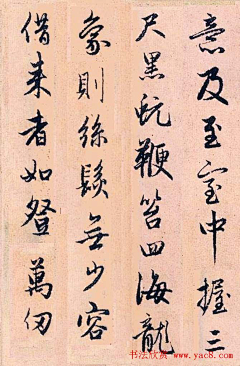 意及至室中握三
尺黑蚖鞭笞四海龍
象則絲髮無少容
借来者如登萬仞
书法欣赏
www.yac8.com